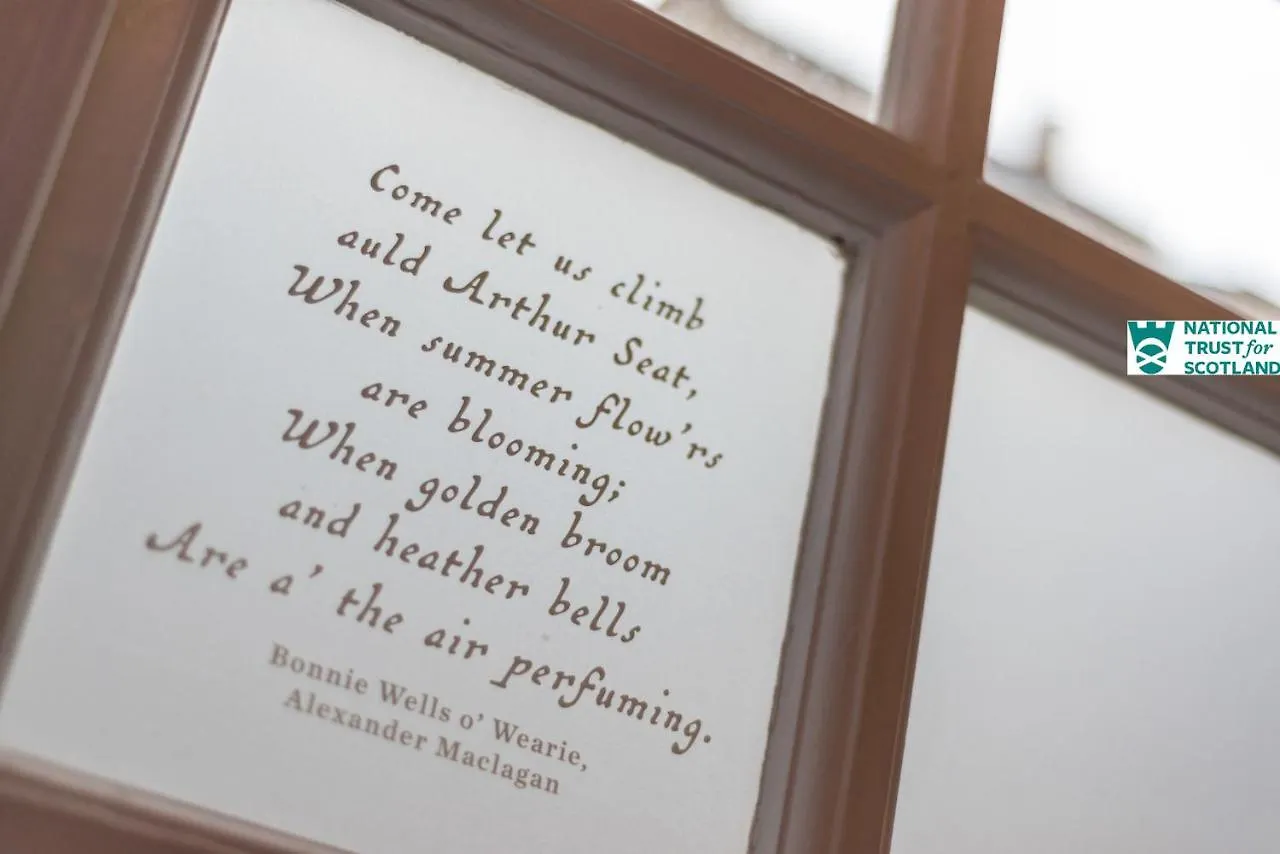 Come let us climb
auld Arthur Seat,
When summer flow'rs
are blooming;
When golden broom
and heather bells
Are a' the air perfuming.
Bonnie Wells o' Wearie,
Alexander Maclagan
NATIONAL
TRUST for
SCOTLAND